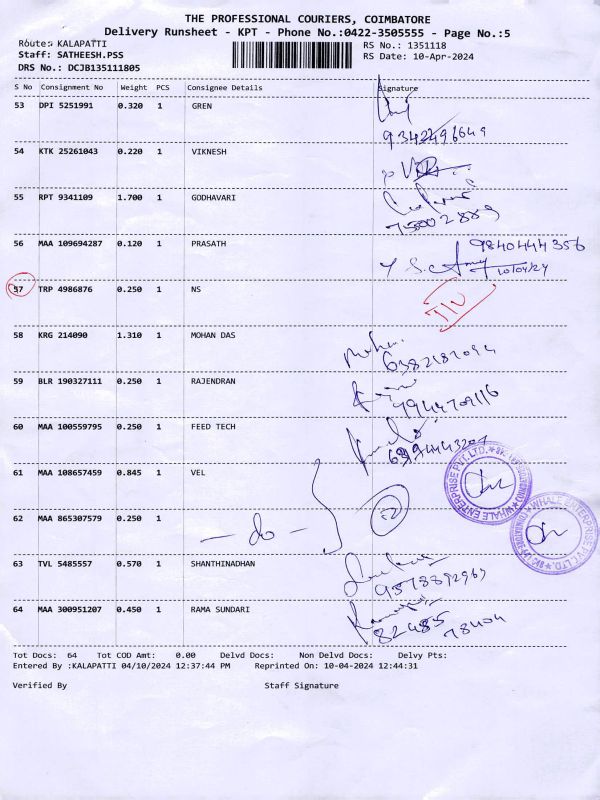 THE PROFESSIONAL COURIERS, COIMBATORE
Delivery Runsheet - KPT - Phone No.:0422-3505555 - Page No.:5
Route: KALAPATTI
RS No.: 1351118
Staff: SATHEESH.PSS
RS Date: 10-Apr-2024
DRS No.: DCJB135111805
S No Consignment No Weight PCS Consignee Details Signature
53 DPI 5251991 0.320 1 GREN
9342496649
54 KTK 25261043 0.220 1 VIKNESH
55 RPT 9341109 1.700 1 GODHAVARI
56 MAA 109694287 0.120 1 PRASATH 9840444356
10/04/24
57 TRP 4986876 0.250 1 NS
58 KRG 214090 1.310 1 MOHAN DAS
59 BLR 190327111 0.250 1 RAJENDRAN
60 MAA 100559795 0.250 1 FEED TECH
61 MAA 108657459 0.845 1 VEL
62 MAA 865307579 0.250 1
- do -
WHALE ENTERPRISE PVT. LTD.
WHALE ENTERPRISE PVT. LTD.
63 TVL 5485557 0.570 1 SHANTHINADHAN
9578892969
64 MAA 300951207 0.450 1 RAMA SUNDARI
82485 78404
Tot Docs: 64 Tot COD Amt: 0.00 Delvd Docs: Non Delvd Docs: Delvy Pts:
Entered By :KALAPATTI 04/10/2024 12:37:44 PM Reprinted On: 10-04-2024 12:44:31
Verified By Staff Signature